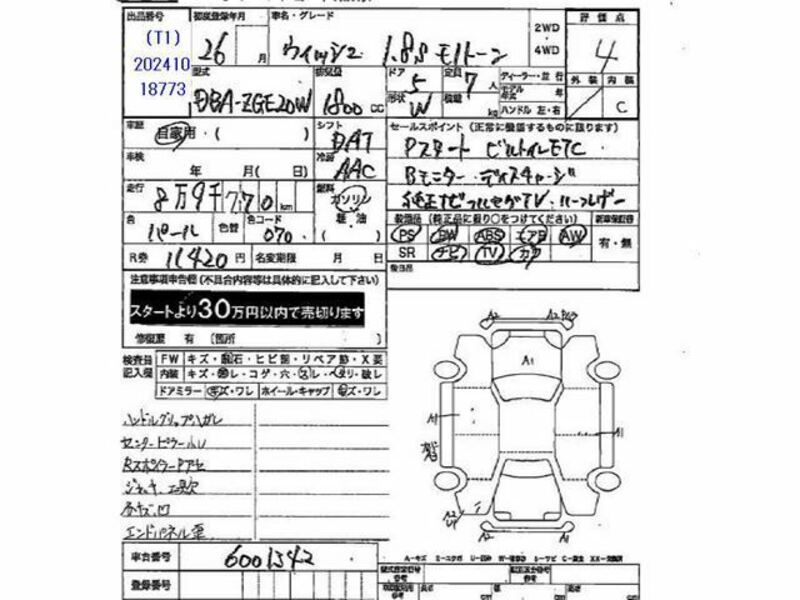 出品番号
(T1)
202410
18773
初度登録年月
26 月
車名・グレード
ウィッシュ 1.8S モノトーン
2WD
4WD
評価点
4
外装 内装
C
型式
DBA-ZGE20W
排気量
1800 cc
ドア
5
定員
7 人
形状
W
積載
kg
ディーラー・並行
モデル年式 年
ハンドル 左・右
車歴
自家用・( )
シフト
DAT
冷房
AAC
車検
年 月( 日)
セールスポイント(正常に機能するものに限ります)
Pスタート ビルトインETC
Bモニター ディスチャージ
純正ナビフルセグTV ハーフレザー
走行
8万9千770 km
燃料
ガソリン
軽油
( )
色
パール
色替
色コード
070
装備品(純正品に限り○をつけてください)
新車保証書
PS PW ABS エアB AW
SR ナビ TV カワ
有・無
後日品
R券 11420 円
名変期限 月 日
注意事項申告欄(不具合内容等は具体的に記入して下さい)
スタートより30万円以内で売切ります
修復歴 有 〔箇所 〕
検査員
記入欄
FW キズ・飛石・ヒビ割・リペア跡・X要
内装 キズ・汚レ・コゲ・穴・スレ・ヘタリ・破レ
ドアミラー キズ・ワレ ホイール・キャップ キズ・ワレ
ハンドルグリップハガレ
センターピラー
RスポイラーPアセ
ジャッキ、工具欠
各キズ凹
エンドパネル歪
A2
A2
A1
A1
A1
A2
A2
A1
車台番号
6001342
登録番号